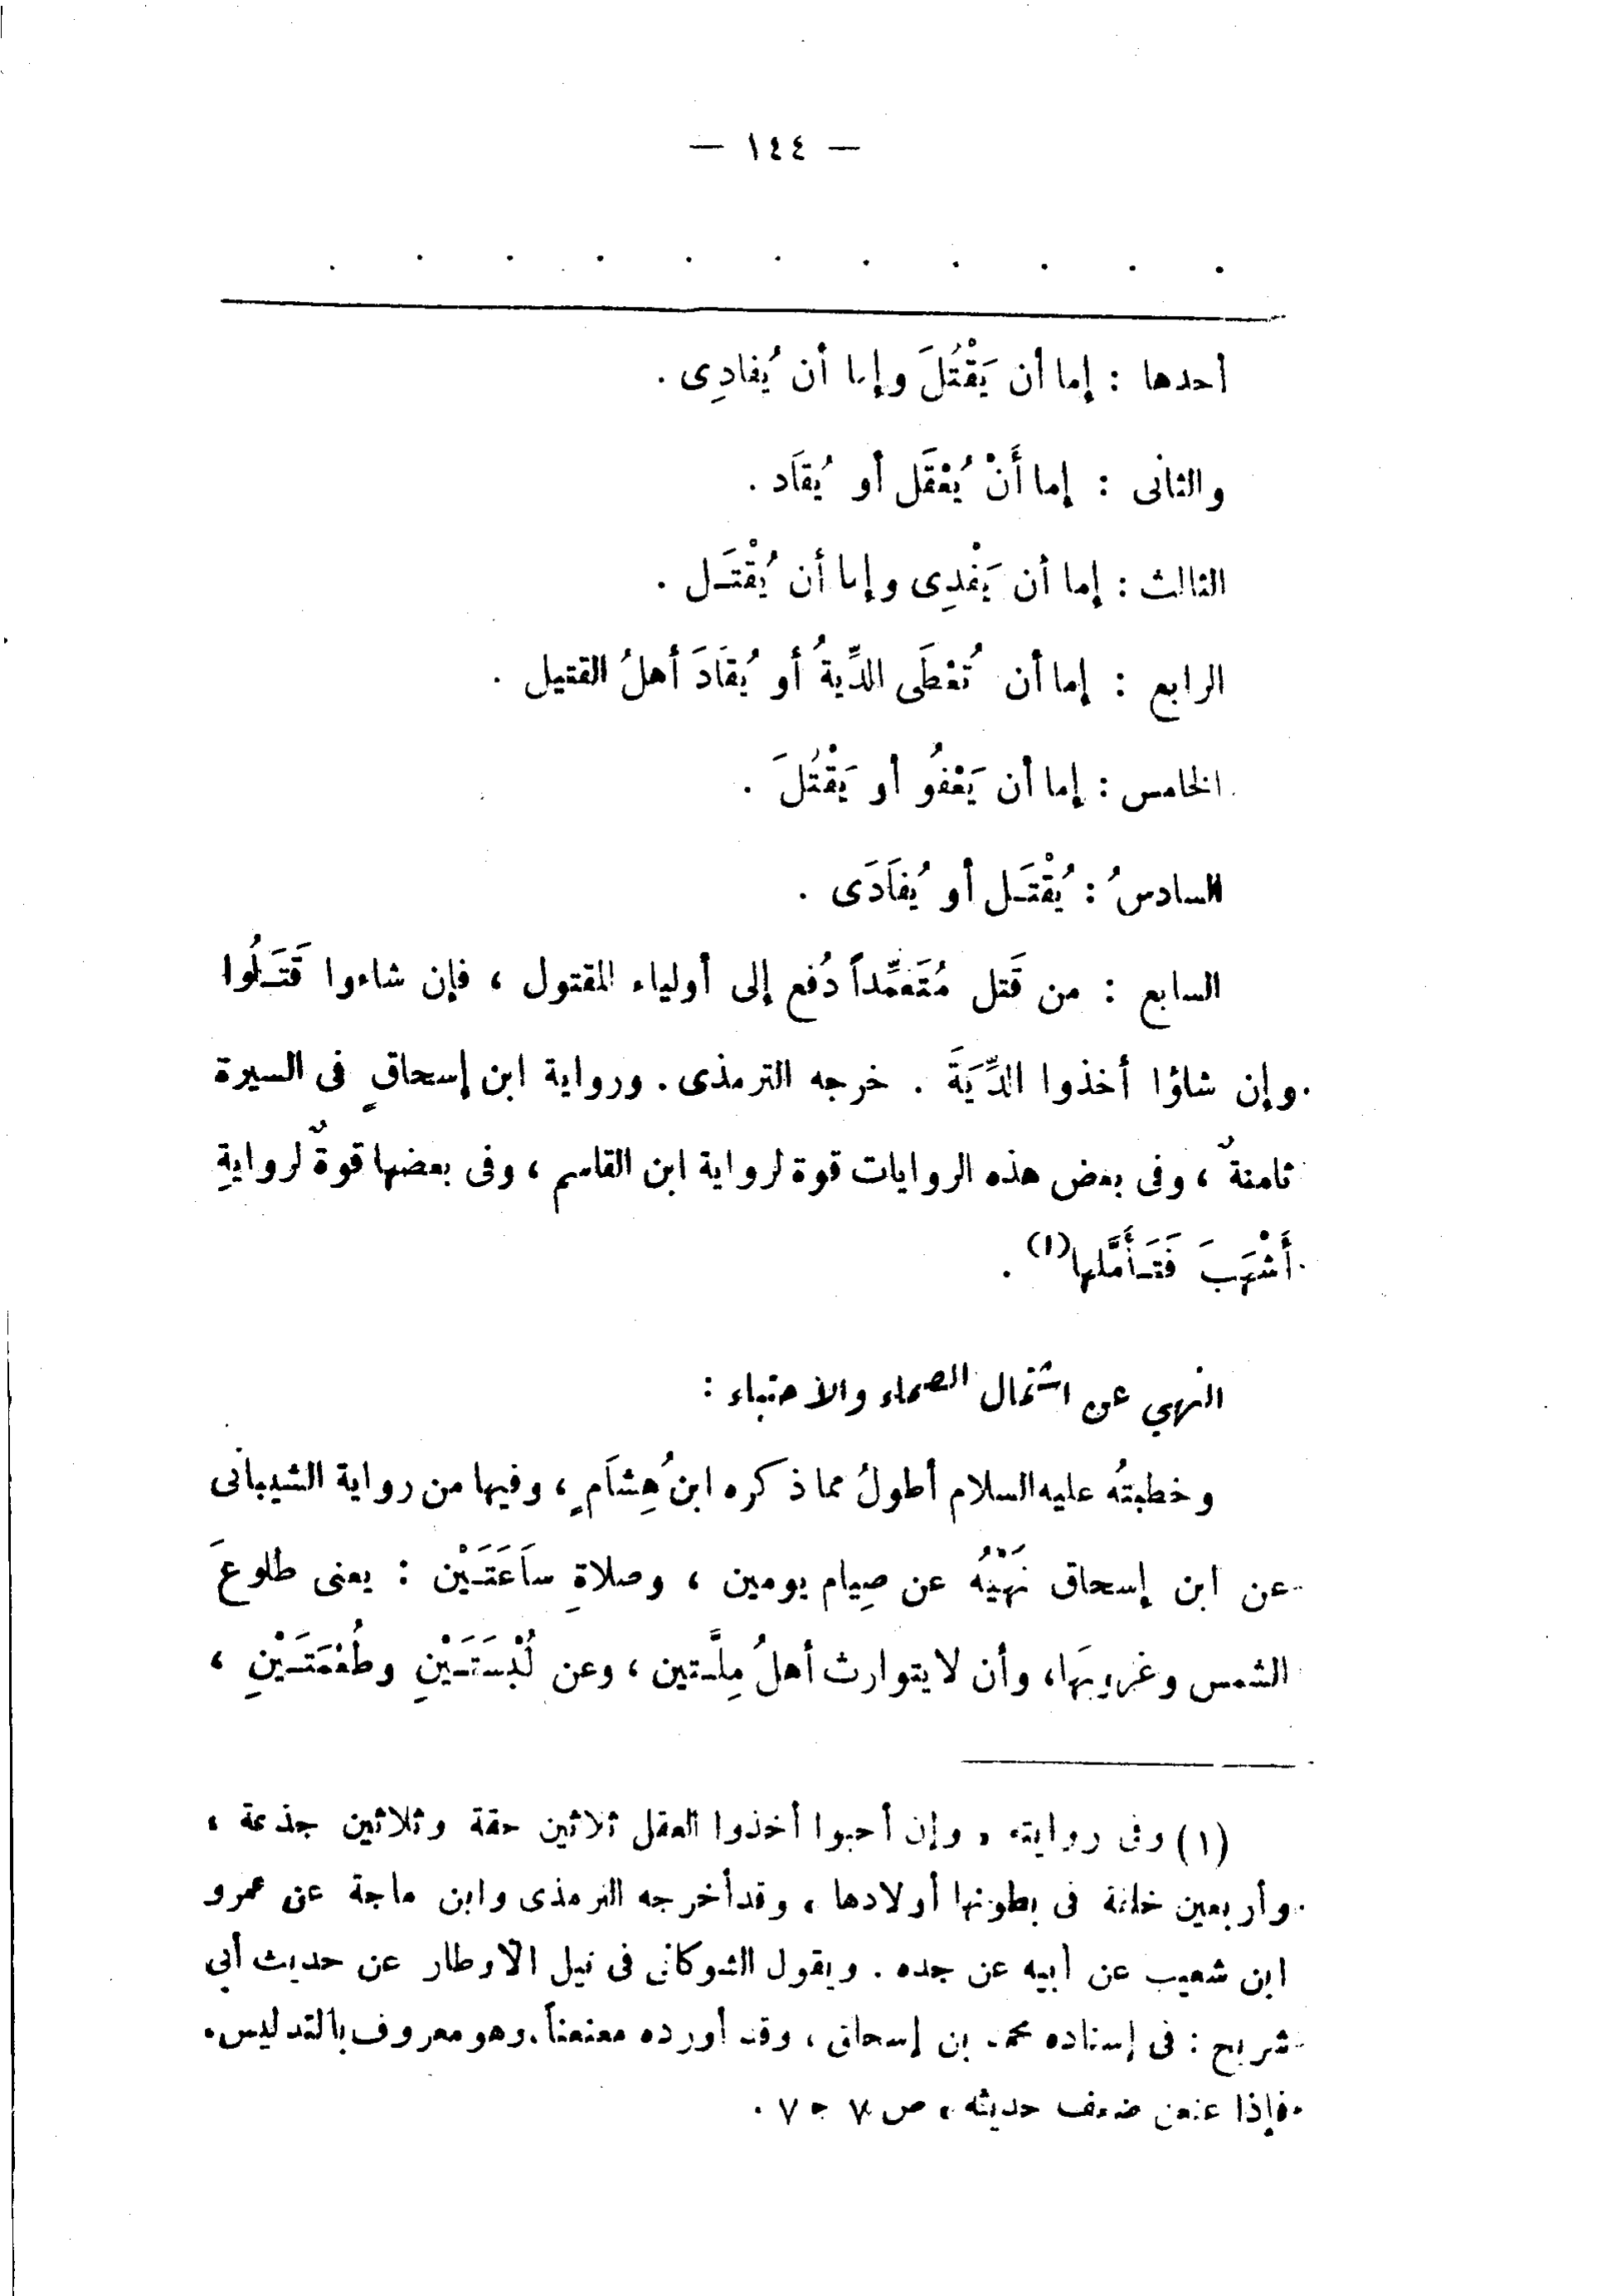 — ١٤٤ —
. . . . . . . . . . .
أحدها : إما أن يَقْتُلَ وإما أن يُفادِى .
والثانى : إما أَنْ يُعْقَل أو يُقاَد .
الثالث : إما أن يَفْدِى وإما أن يُقْتَـل .
الرابع : إما أن تُعْطَى الدِّيةُ أو يُقاَدَ أهلُ القتيل .
الخامس : إما أن يَعْفُو أو يَقْتُلَ .
السادسُ : يُقْتَـل أو يُفاَدَى .
السابع : من قَتل مُتَعمِّداً دُفع إلى أولياء المقتول ، فإن شاءوا قَتَـلُوا
وإن شاؤا أخذوا الدِّيَةَ . خرجه الترمذى . ورواية ابن إسحاقٍ فى السيرة
ثامنةٌ ، وفى بعض هذه الروايات قوة لرواية ابن القاسم ، وفى بعضها قوةٌ لروايةِ
أَشْهَبَ فَتَـأَمَّلها(١) .
النهي عن اشتمال الصماء والاحتباء :
وخطبتُه عليه السلام أطولُ مما ذكره ابنُ هِشاَمٍ ، وفيها من رواية الشيبانى
عن ابن إسحاق نَهْيُهُ عن صِيام يومين ، وصلاةِ ساَعَتَـيْن : يعنى طلوعَ
الشمس وغروبَها ، وأن لا يتوارث أهلُ مِلَّـتين ، وعن لُبْسَتَـيْنِ وطُعْمَتَـيْنِ ،
(١) وفى روايته « وإن أحبوا أخذوا العقل ثلاثين حقة وثلاثين جذعة ،
وأربعين خلفة فى بطونها أولادها ، وقد أخرجه الترمذى وابن ماجة عن عمرو
ابن شعيب عن أبيه عن جده . ويقول الشوكانى فى نيل الأوطار عن حديث أبى
شريح : فى إسناده محمد بن إسحاق ، وقد أورده معنعناً . وهو معروف بالتدليس .
فإذا عنعن ضعف حديثه ، ص ٧ ج ٧ .